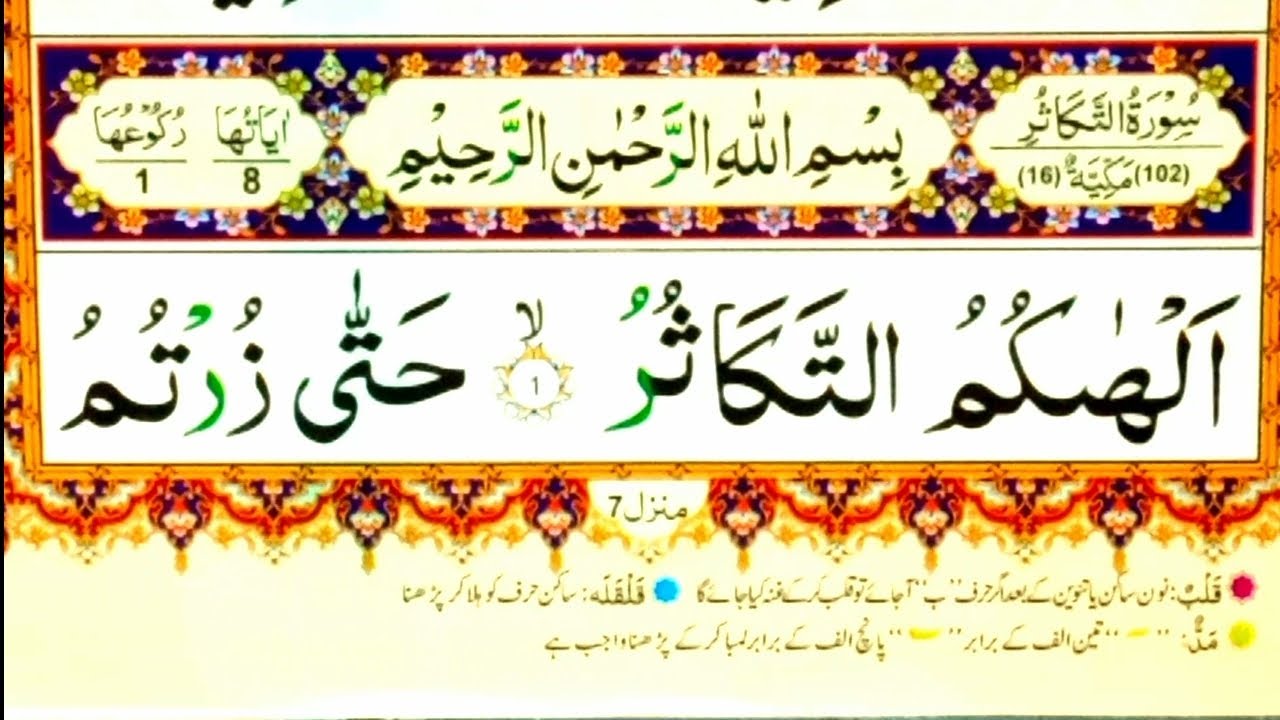 سُوْرَةُ التَّكَاثُرِ
(102) مَكِّيَّةٌ (16)
بِسْمِ اللّٰهِ الرَّحْمٰنِ الرَّحِيْمِ
اٰيَاتُهَا 8
رُكُوْعُهَا 1
اَلْهٰىكُمُ التَّكَاثُرُ ۙ 1 حَتّٰى زُرْتُمُ
منزل 7
قَلْب: نون ساکن یا تنوین کے بعد اگر حرف "ب" آجائے تو قلب کرکے غنہ کیا جائے گا قَلْقَلَه: ساکن حرف کو ہلا کر پڑھنا
مَدّ: "ـٓ" تین الف کے برابر "ـٓ" پانچ الف کے برابر لمبا کر کے پڑھنا واجب ہے